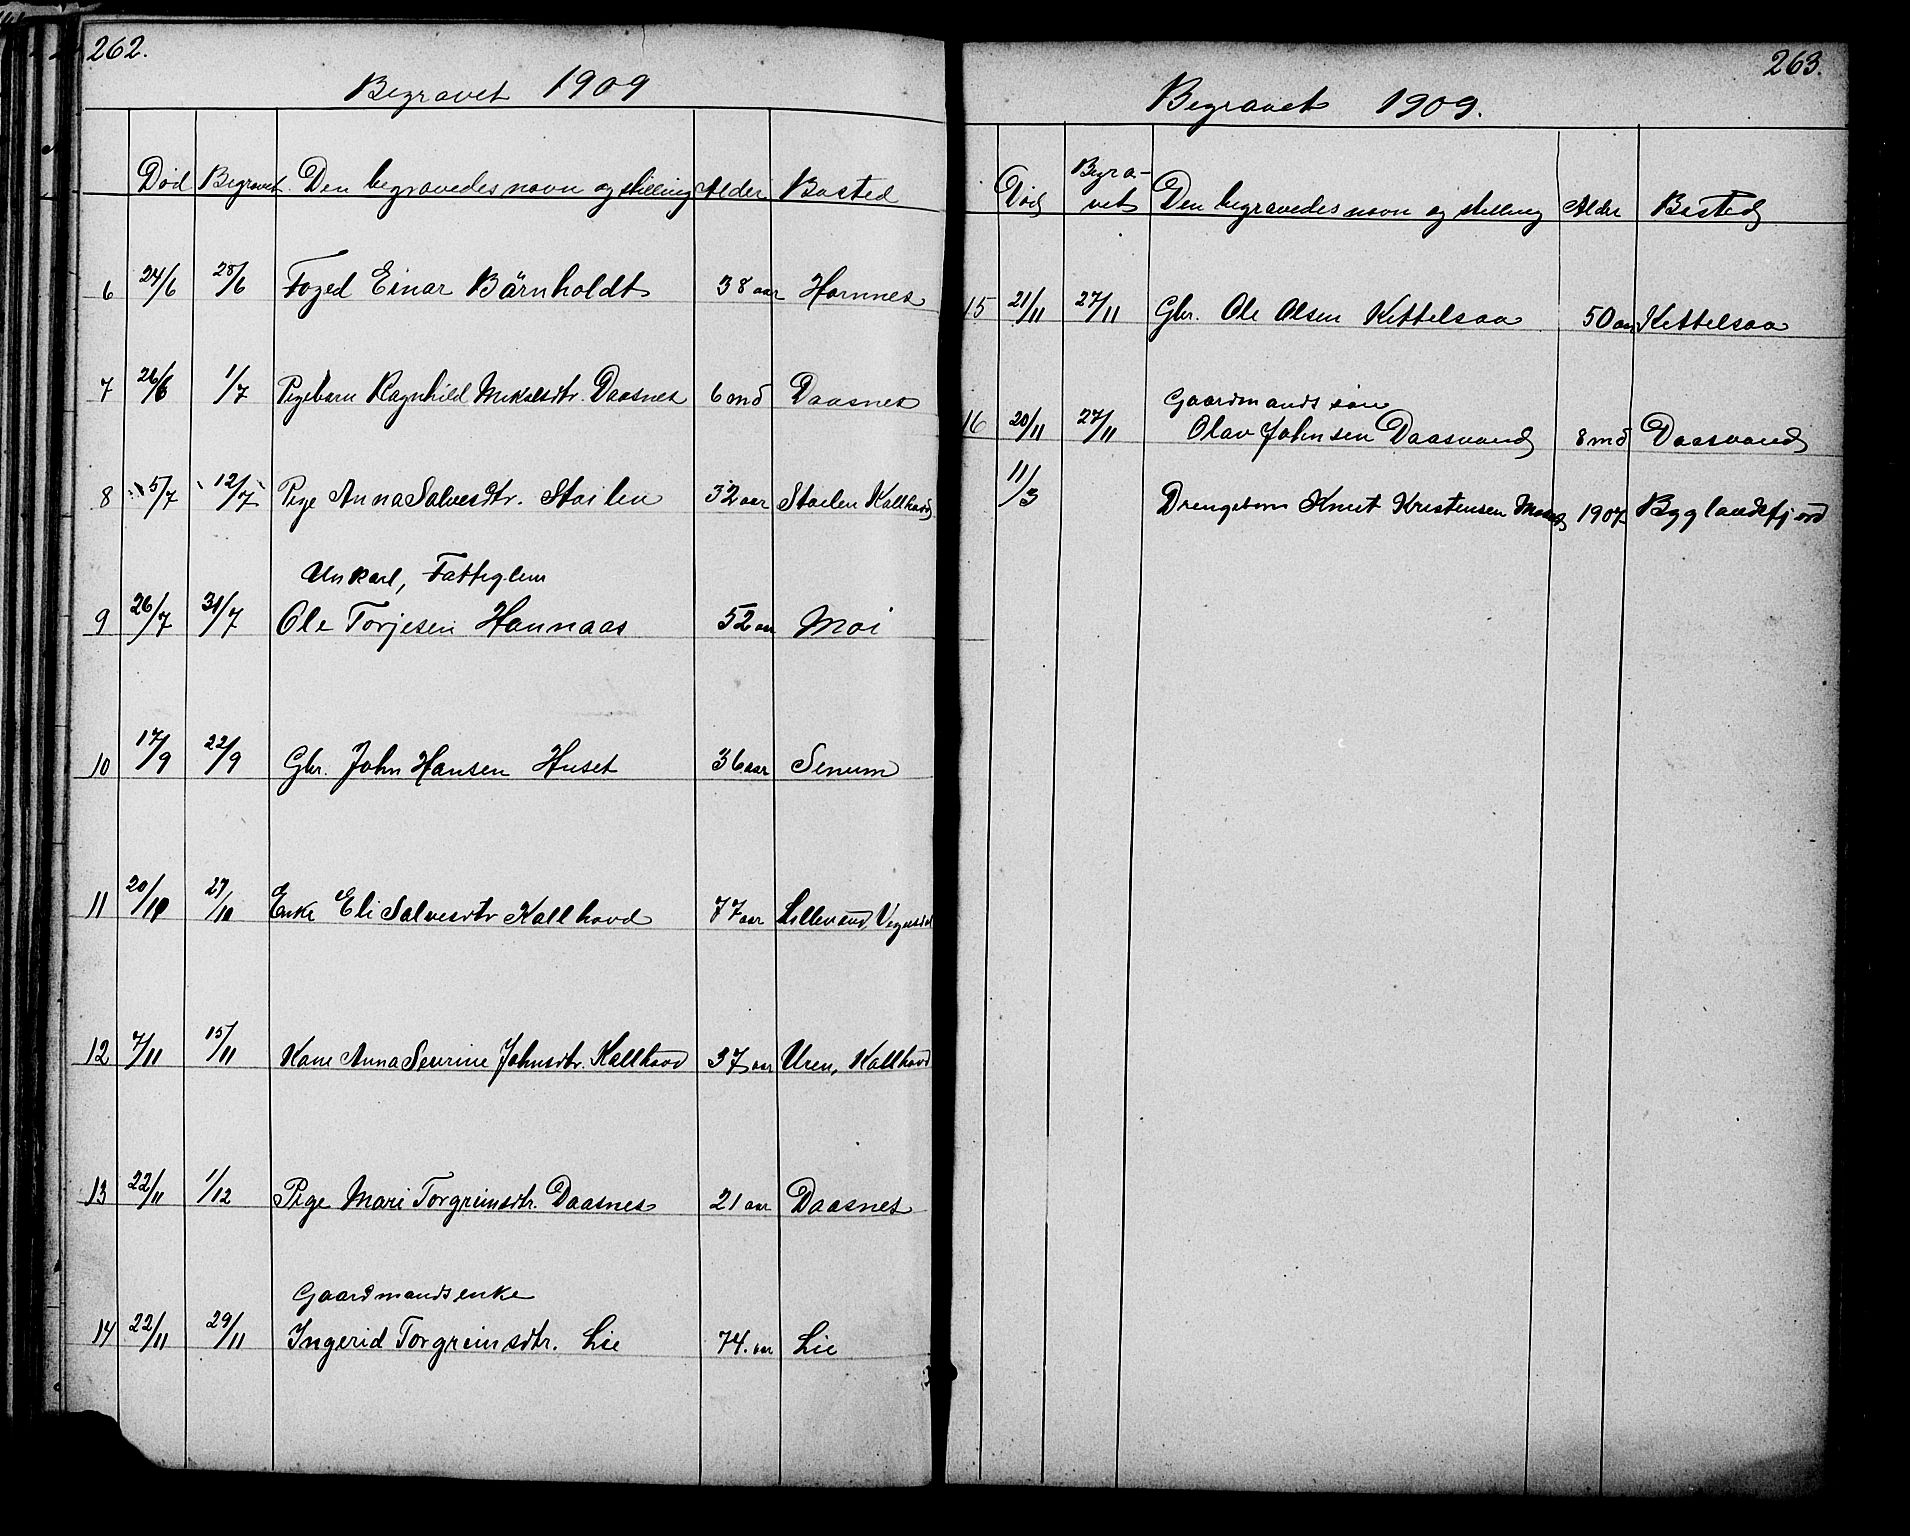 262.
Begravet 1909
Død Begravet Den begravedes navn og stilling Alder Bosted
6 24/6 28/6 Foged Einar Bärnholdt 38 aar Hornnes
7 26/6 1/7 Pigebarn Ragnhild Mikalsdtr. Daasnes 6 md Daasnes
8 5/7 12/7 Pige Anna Salvesdtr. Stoilen 32 aar Stoilen Kallhovd
Unkarl, Fattiglem
9 26/7 31/7 Ole Torjesen Hannaas 52 aar Moi
10 17/9 22/9 Gbr. John Hansen Huset 36 aar Senum
11 20/10 27/10 Enke Eli Salvesdtr Kallhovd 77 aar Lillevand, Vegusdal
12 7/11 15/11 Kone Anna Severine Johnsdtr. Kallhovd 37 aar Uren, Kallhovd
13 22/11 1/12 Pige Mari Torgrimsdtr. Daasnes 21 aar Daasnes
Gaardmandsenke
14 22/11 29/11 Ingerid Torgreimsdtr. Lie 74. aar Lie
263.
Begravet 1909.
Død Begra-vet Den begravedes navn og stilling Alder Bosted
15 21/11 27/11 Gbr. Ole Olsen Kettelsaa 50 aar Kettelsaa
Gaardmands søn
16 20/11 27/11 Olav Johnsen Daasvand 8 md Daasvand
11/3 Drengebarn Knut Kristensen 1907 Byglandsfjord